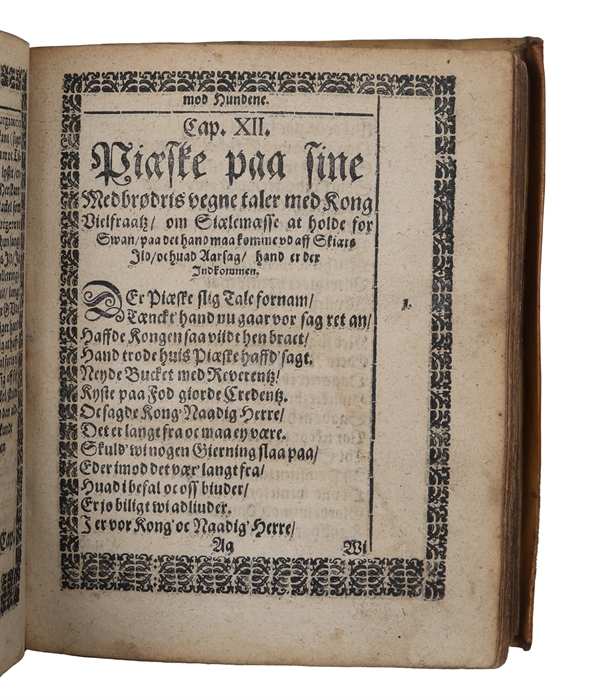 mod Hundene.
Cap. XII.
Piæske paa sine
Medbrødris vegne taler med Kong
Vielfraatz/ om Siælemæsse at holde for
Swan/paa det hand maa komme vd aff Skiærs
Ild/oc huad Aarsag/ hand er der
Indkommen.
DEr Piæske slig Tale fornam/
Tænckt' hand nu gaar vor sag ret an/
Haffde Kongen saa vildt hen bract/
Hand trode huis Piæske haffd' sagt.
Neyde Bucket med Reverentz/
Kyste paa Fod giorde Credentz.
Oc sagde Kong' Naadig Herre/
Det er langt fra oc maa ey være.
Skuld' wi nogen Gierning slaa paa/
Eder imod det vær langt fra/
Huad i befal oc oss biuder/
Er jo biligt wi adliuder.
I er vor Kong' oc Naadig Herre/
Aq
Wi
1.